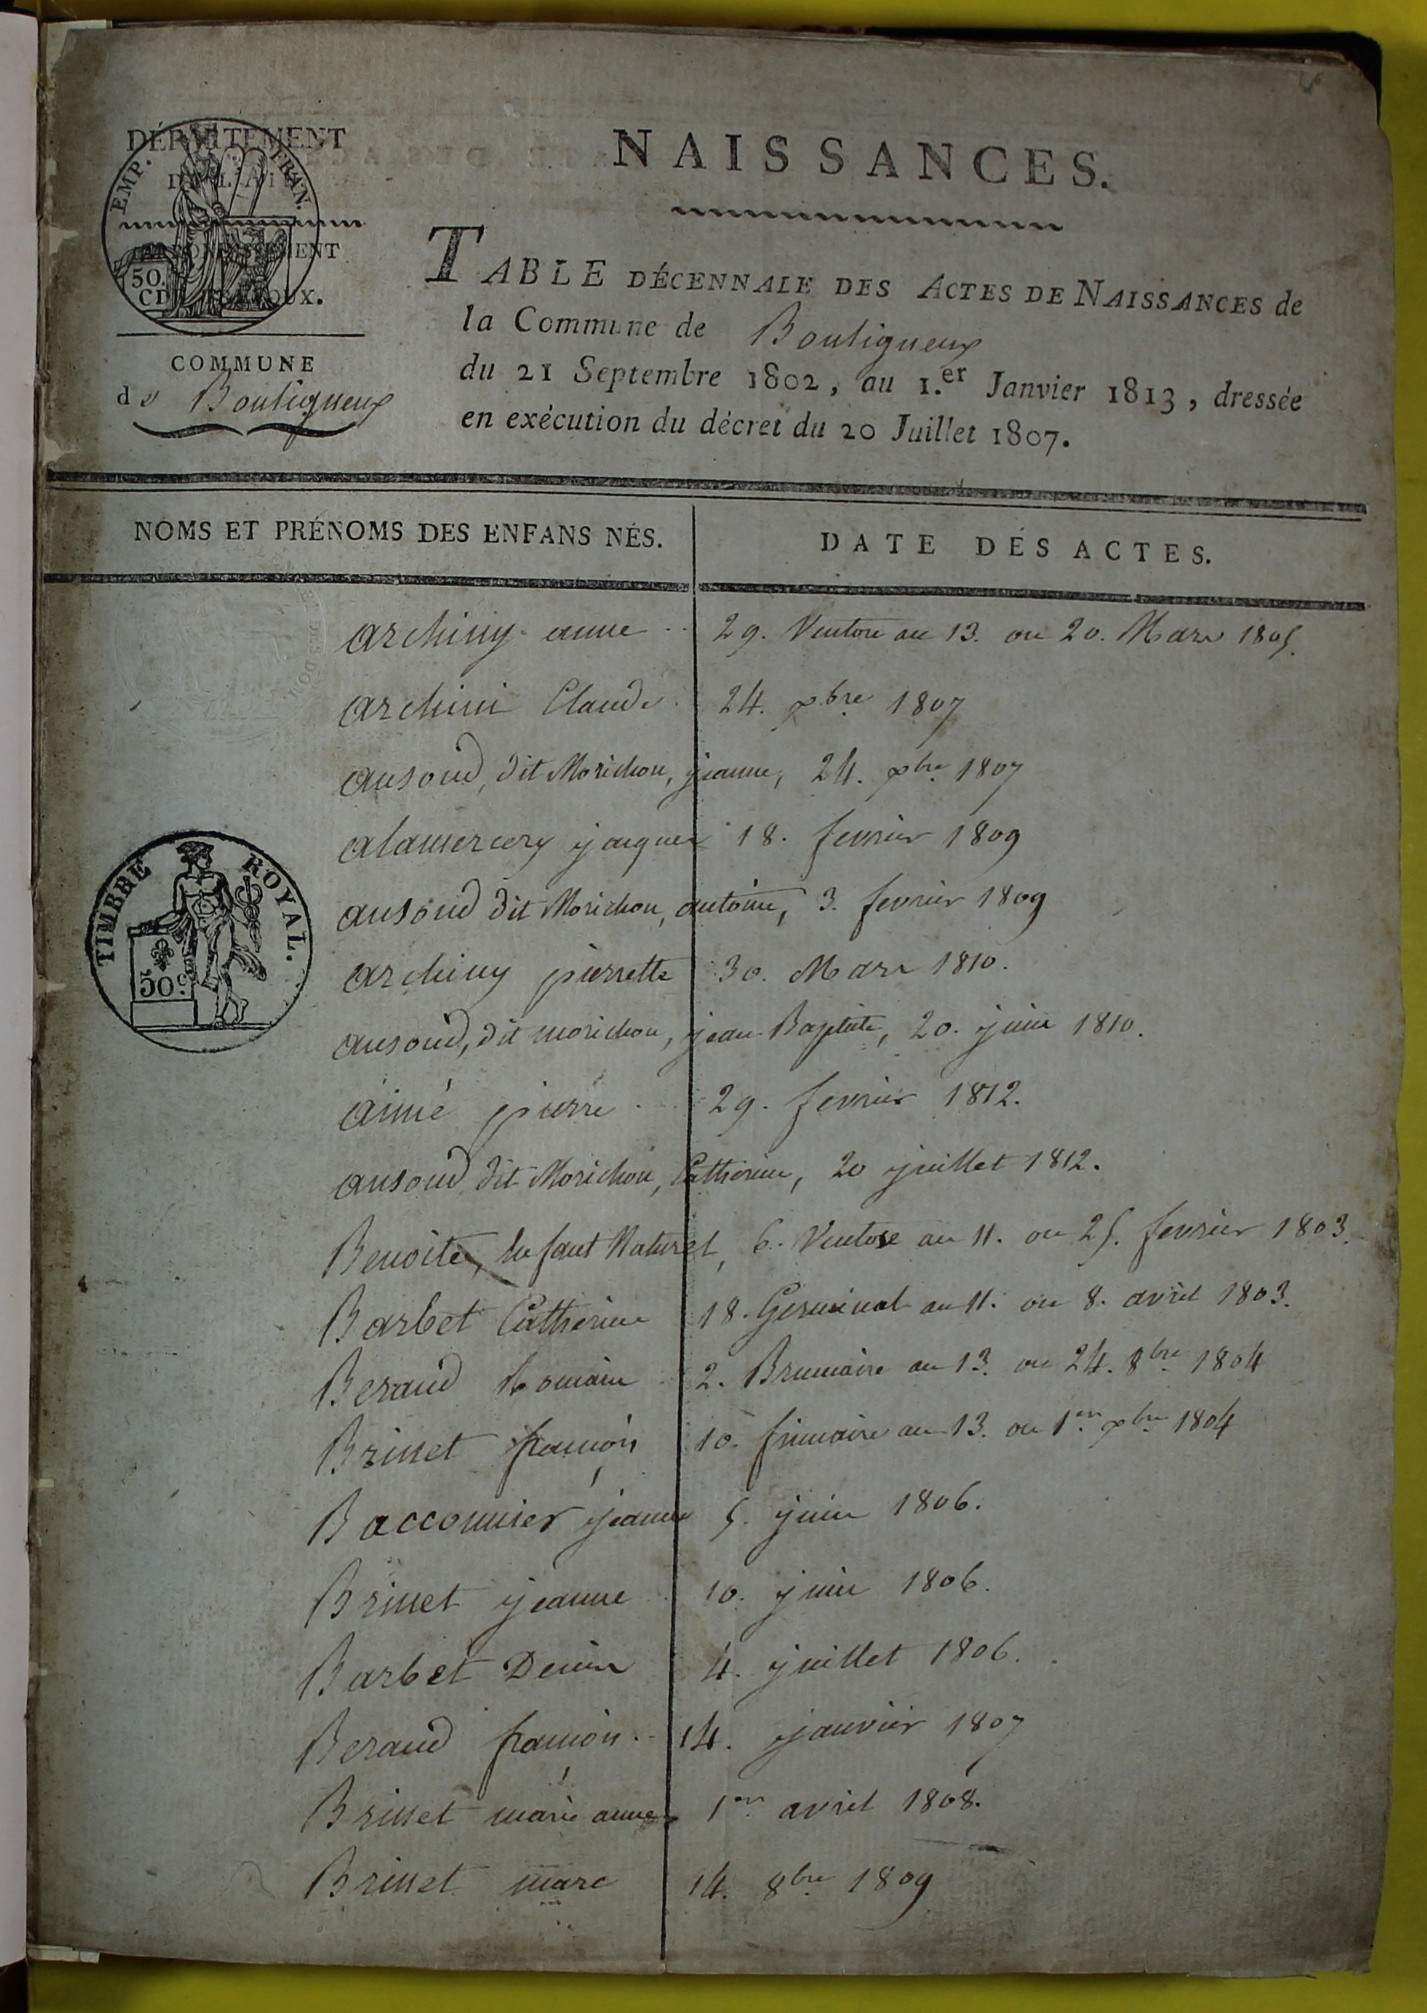 DÉPARTEMENT
DE L'AIN
EMP. FRAN.
ARRONDISSEMENT
50.
CD TRÉVOUX.
COMMUNE
de Bouligneux
NAISSANCES.
TABLE DÉCENNALE DES ACTES DE NAISSANCES de
la Commune de Bouligneux
du 21 Septembre 1802, au 1.er Janvier 1813, dressée
en exécution du décret du 20 Juillet 1807.
NOMS ET PRÉNOMS DES ENFANS NÉS. DATE DES ACTES.
archiny anne 29. Ventose an 13. ou 20. Mars 1805.
archini Claude 24. xbre 1807
ausoud, dit Morichon, jeanne, 24. xbre 1807
alamercery jacques 18. fevrier 1809
ausoud dit Morichon, antoine, 3. fevrier 1809
TIMBRE ROYAL.
50c
archiny pierrette 30. Mars 1810.
ausoud, dit morichon, jean Baptiste, 20. juin 1810.
aimé pierre 29. fevrier 1812.
ausoud dit Morichon, Catherine, 20 juillet 1812.
Benoite, enfant Naturel, 6. Ventose an 11. ou 25. fevrier 1803.
Barbet Catherine 18. Germinal an 11. ou 8. avril 1803.
Beraud Romain 2. Brumaire an 13. ou 24. 8bre 1804
Brinet françois 10. frimaire an 13. ou 1er xbre 1804
Bacconnier jeanne 5. juin 1806.
Brinet jeanne 10. juin 1806.
Barbet Denis 4. juillet 1806.
Beraud françois 14. janvier 1807
Brinet marie anne 1er avril 1808.
Brinet marc 14. 8bre 1809